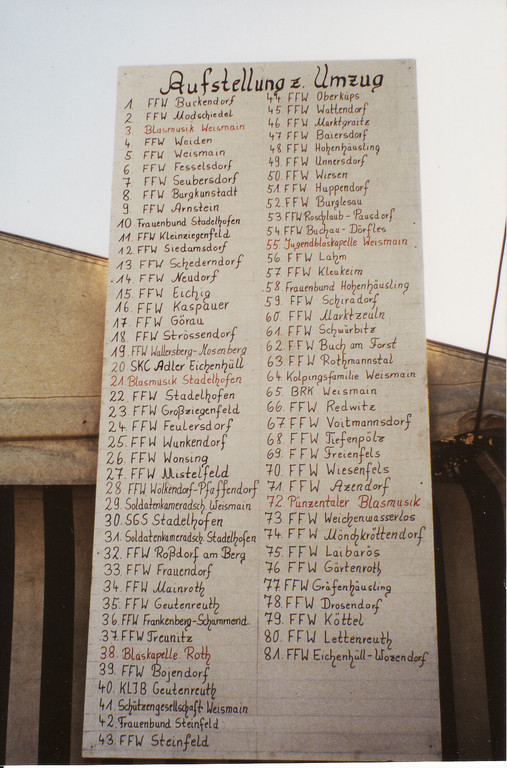 Aufstellung z. Umzug
1 FFW Buckendorf
2 FFW Modschiedel
3. Blasmusik Weismain
4 FFW Weiden
5 FFW Weismain
6 FFW Fesselsdorf
7 FFW Seubersdorf
8. FFW Burgkunstadt
9. FFW Arnstein
10. Frauenbund Stadelhofen
11. FFW Kleinziegenfeld
12. FFW Siedamsdorf
13. FFW Schederndorf
14. FFW Neudorf
15. FFW Eichig
16. FFW Kaspauer
17. FFW Görau
18. FFW Strössendorf
19. FFW Wallersberg-Mosenberg
20 SKC Adler Eichenhüll
21 Blasmusik Stadelhofen
22. FFW Stadelhofen
23 FFW Großziegenfeld
24 FFW Feulersdorf
25. FFW Wunkendorf
26. FFW Wonsing
27. FFW Mistelfeld
28. FFW Wolkendorf-Pfaffendorf
29. Soldatenkameradsch. Weismain
30. SGS Stadelhofen
31. Soldatenkameradsch. Stadelhofen
32. FFW Roßdorf am Berg
33. FFW Frauendorf
34. FFW Mainroth
35. FFW Geutenreuth
36. FFW Frankenberg-Schammend.
37. FFW Treunitz
38. Blaskapelle Roth
39. FFW Bojendorf
40. KLJB Geutenreuth
41. Schützengesellschaft Weismain
42. Frauenbund Steinfeld
43. FFW Steinfeld
44. FFW Oberküps
45 FFW Wattendorf
46 FFW Marktgraitz
47 FFW Baiersdorf
48 FFW Hohenhäusling
49. FFW Unnersdorf
50. FFW Wiesen
51 FFW Huppendorf
52. FFW Burglesau
53 FFW Roschlaub-Pausdorf
54. FFW Buchau-Dörfles
55 Jugendblaskapelle Weismain
56 FFW Lahm
57 FFW Kleukeim
58 Frauenbund Hohenhäusling
59. FFW Schiradorf
60. FFW Marktzeuln
61 FFW Schwürbitz
62 FFW Buch am Forst
63 FFW Rothmannstal
64 Kolpingsfamilie Weismain
65. BRK Weismain
66. FFW Redwitz
67 FFW Voitmannsdorf
68 FFW Tiefenpölz
69. FFW Freienfels
70. FFW Wiesenfels
71 FFW Azendorf
72 Punzentaler Blasmusik
73 FFW Weichenwasserlos
74 FFW Mönchkröttendorf
75. FFW Laibarös
76 FFW Gärtenroth
77 FFW Gräfenhäusling
78. FFW Drosendorf
79. FFW Köttel
80. FFW Lettenreuth
81. FFW Eichenhüll-Wozendorf